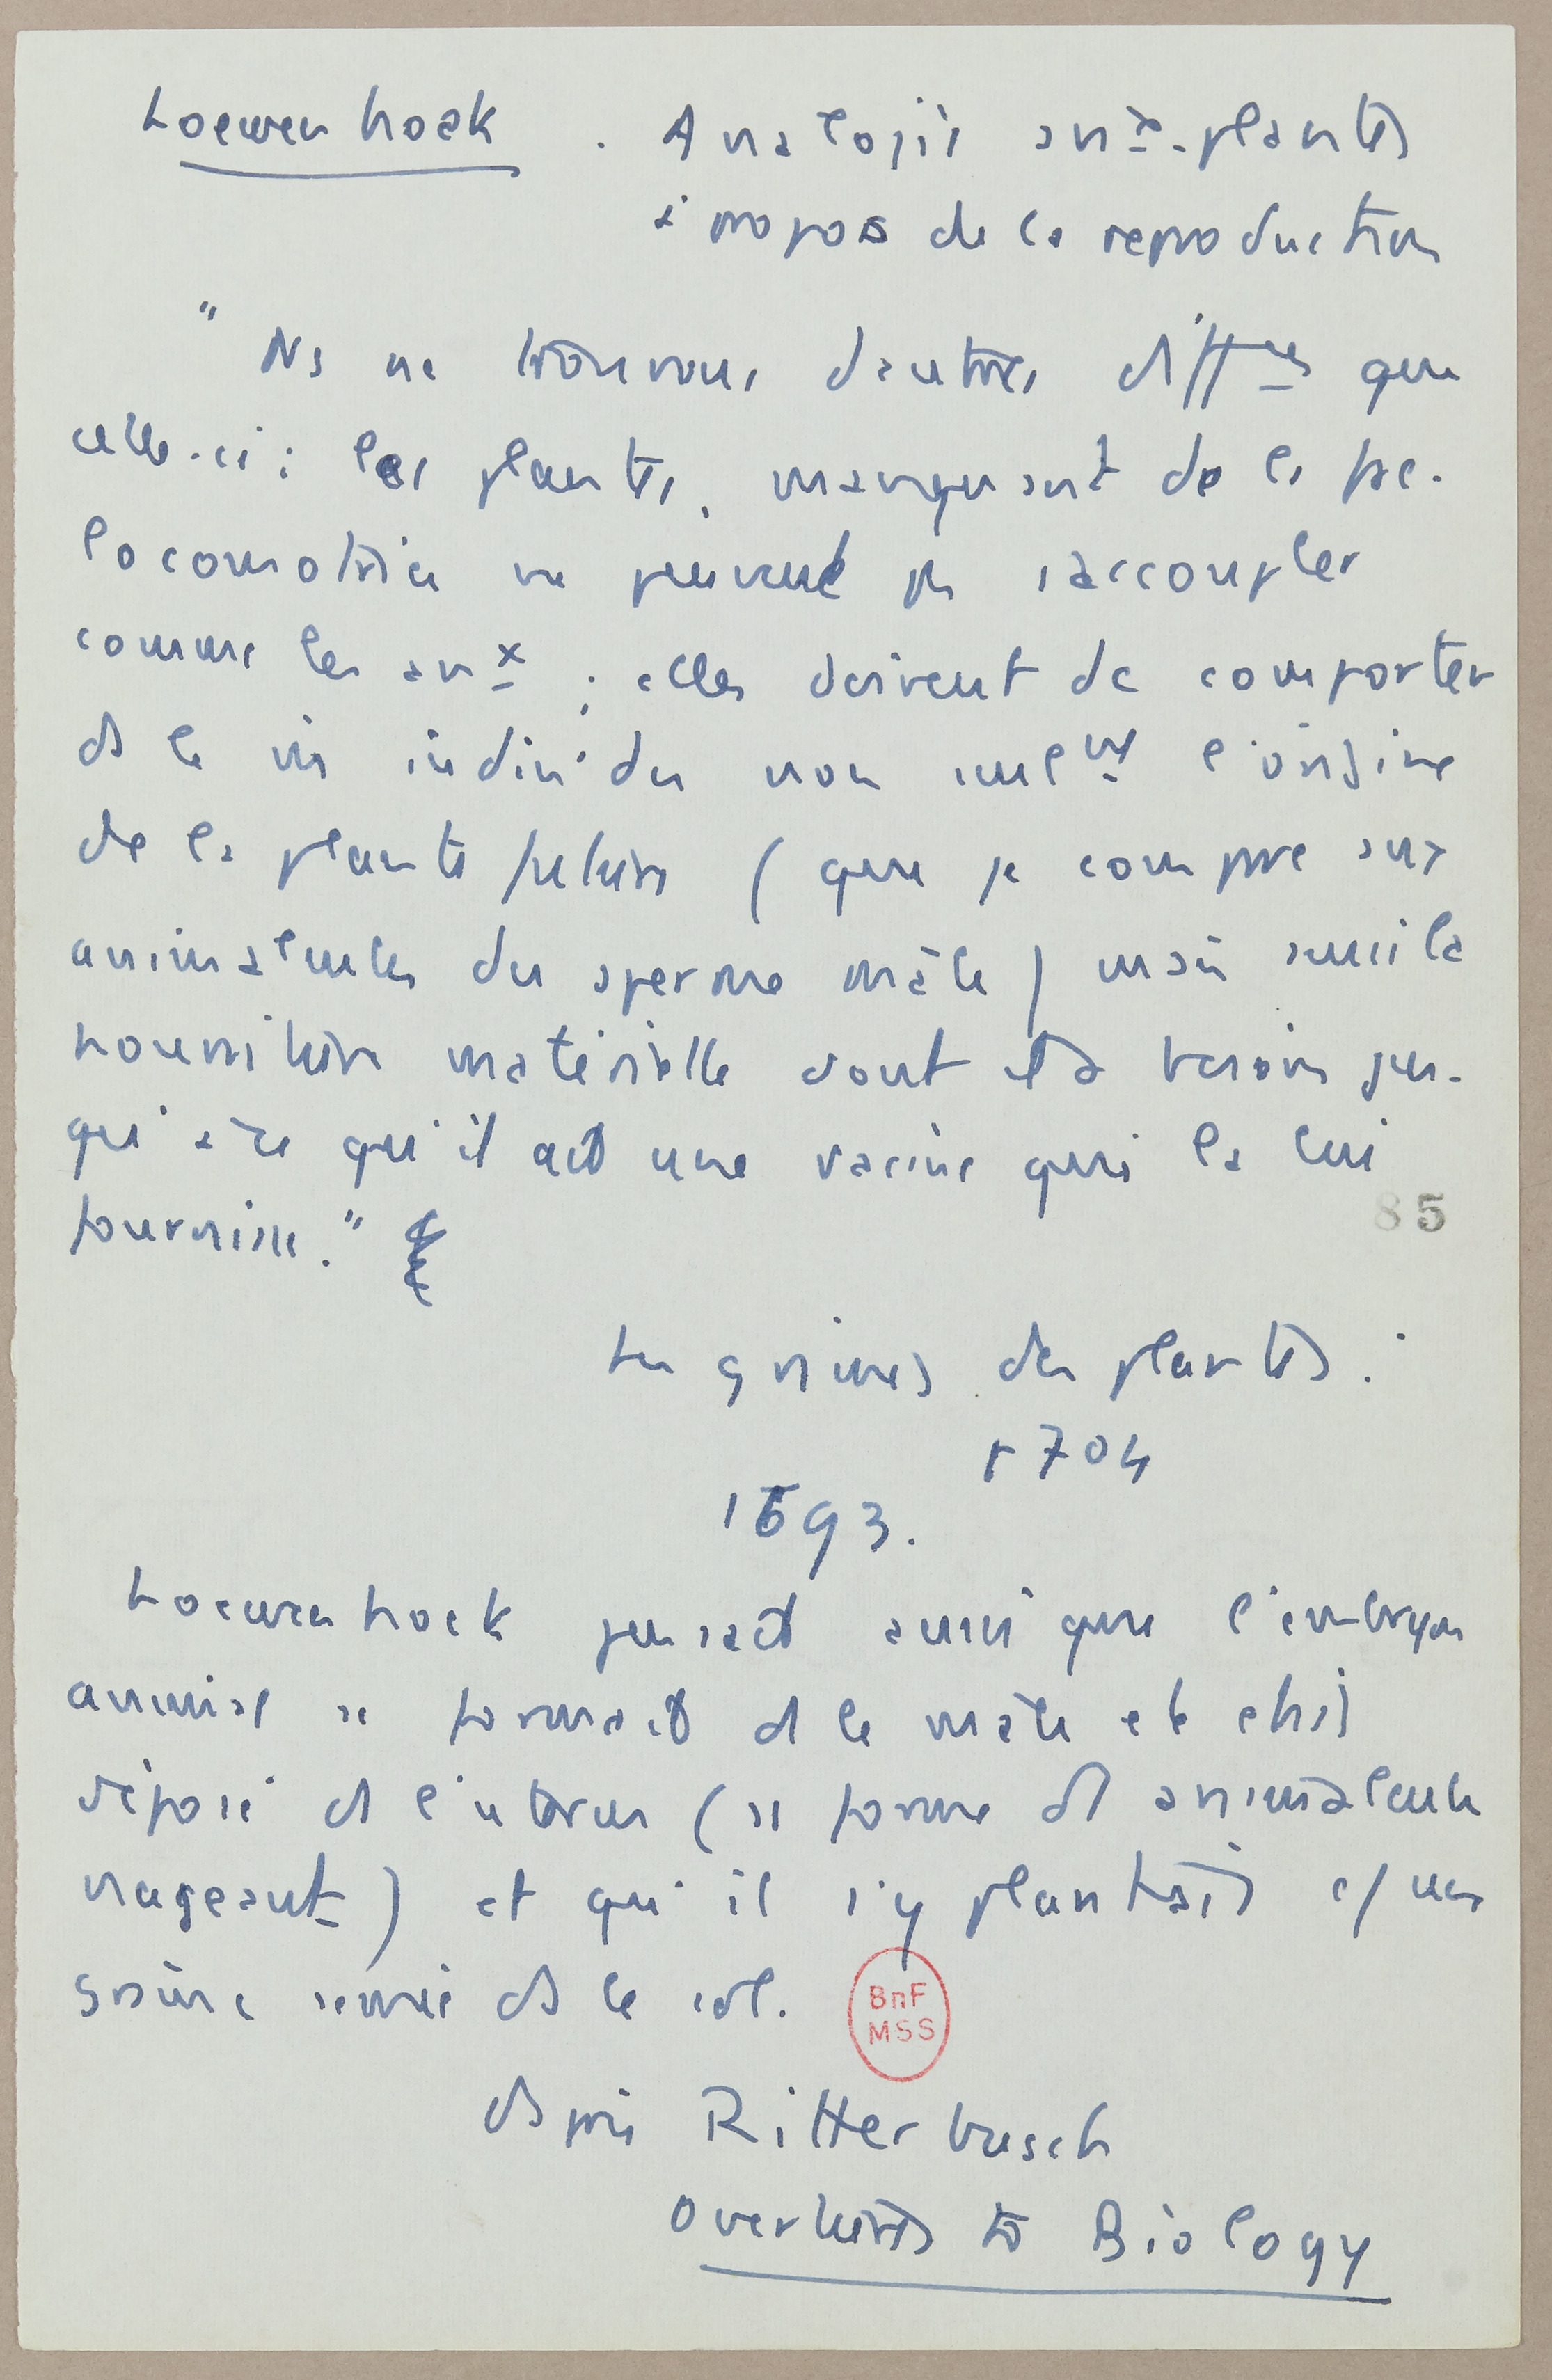 Loewenhoek . Analogies anx-plantes
à propos de la reproduction
" Ns ne trouvons d'autres diffces que
celle-ci : les plantes, manquant de la fac.
locomotrice ne peuvent pas s'accoupler
comme les anx ; elles doivent de comporter
ds le vis individu non seulmt l'origine
de la plante future (que je compare aux
animalcules du sperme mâle) mais aussi la
nourriture matérielle dont il a besoin jus-
qu'à ce qu'il ait une racine qui la lui
fournisse."
85
Les graines des plantes.
1704
1693.
Loewenhoek pensait aussi que l'embryon
animal se formait ds le mâle et était
déposé ds l'uterus (ss forme d' animalcule
nageant) et qu'il s'y plantait c/ une
graine semée ds le sol.
BnF
MSS
Daprès Ritterbusch
Overtures to Biology